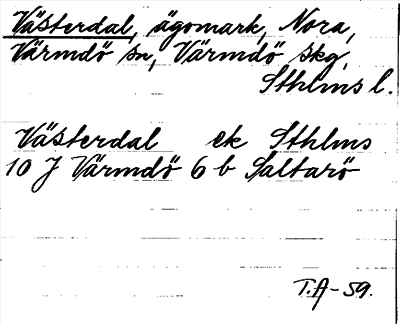 Västerdal, ägomark, Nora,
Värmdö sn, Värmdö skg,
Sthlms l.
Västerdal ek Sthlms
10 J Värmdö 6 b Saltarö
T.A-59.